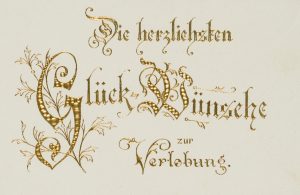 Die herzlichsten
Glück-Wünsche
zur
Verlobung.